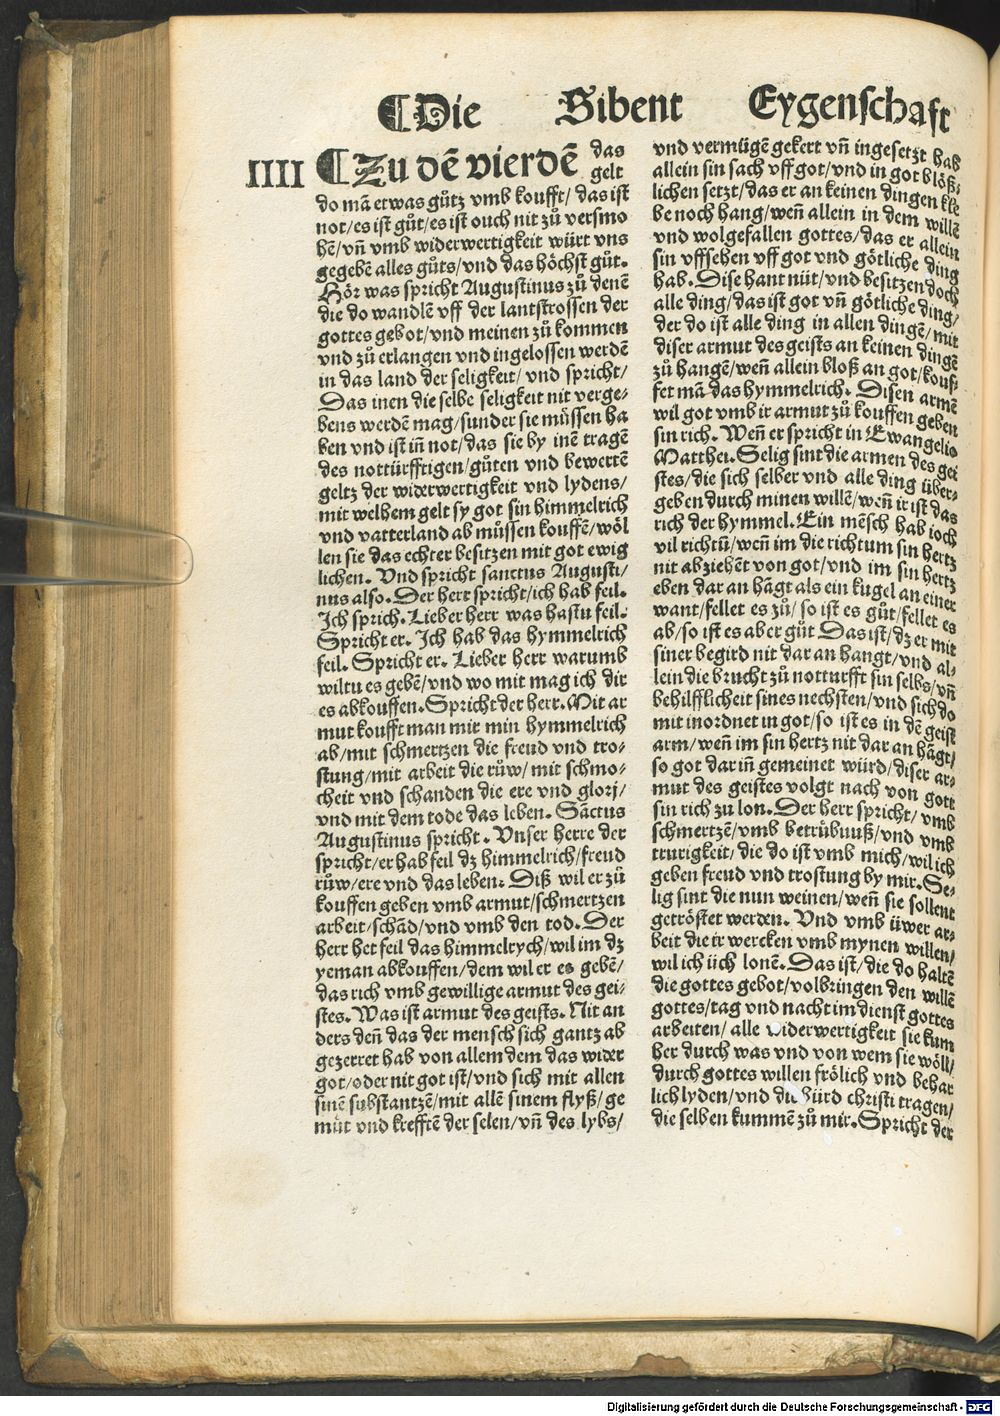 ¶Die Sibent Eygenschaft
IIII ¶Zu dē vierdē das
gelt
do mā etwas gůtz vmb koufft/ das ist
not/es ist gůt/es ist ouch nit zů versmo
hē/vñ vmb widerwertigkeit würt vns
gegebē alles gůts/vnd das höchst gůt.
Hör was spricht Augustinus zů denē
die do wandlē vff der lantstrossen der
gottes gebot/vnd meinen zů kommen
vnd zů erlangen vnd ingelossen werdē
in das land der seligkeit/ vnd spricht/
Das inen die selbe seligkeit nit verge⸗
bens werdē mag/sunder sie müssen ha
ben vnd ist iñ not/das sie by inē tragē
des nottürfftigen/gůten vnd bewertē
geltz der widerwertigkeit vnd lydens/
mit welhem gelt sy got sin himmelrich
vnd vatterland ab můssen kouffē/wöl
len sie das echter besitzen mit got ewig
lichen. Vnd spricht sanctus Augusti/
nus also. Der herr spricht/ich hab feil.
Ich sprich. Lieber herr was hastu feil.
Spricht er. Ich hab das hymmelrich
feil. Spricht er. Lieber herr warumb
wiltu es gebē/vnd wo mit mag ich dir
es abkouffen. Spricht der herr. Mit ar
mut koufft man mir min hymmelrich
ab/mit schmertzen die freud vnd tro⸗
stung/mit arbeit die růw/ mit schmo⸗
cheit vnd schanden die ere vnd glorj/
vnd mit dem tode das leben. Sāctus
Augustinus spricht. Vnser herre der
spricht/er hab feil dz himmelrich/freud
růw/ere vnd das leben. Diß wil er zů
kouffen geben vmb armut/schmertzen
arbeit/schād/vnd vmb den tod. Der
herr het feil das himmelrych/wil im dz
yeman abkouffen/dem wil er es gebē/
das rich vmb gewillige armut des gei⸗
stes. Was ist armut des geists. Nit an
ders deñ das der mensch sich gantz ab
gezerret hab von allem dem das wider
got/oder nit got ist/vnd sich mit allen
sinē substantzē/mit allē sinem flyß/ge
müt vnd krefftē der selen/vñ des lybs/
vnd vermügē gekert vñ ingesetzt hab
allein sin sach vff got/vnd in got blöß⸗
lichen setzt/das er an keinen dingen kle
be noch hang/weñ allein in dem willē
vnd wolgefallen gottes/das er allein
sin vffsehen vff got vnd götliche ding
hab. Dise hant nüt/vnd besitzen doch
alle ding/das ist got vñ götliche ding/
der do ist alle ding in allen dingē/mit
diser armut des geists an keinen dingē
zů hangē/weñ allein bloß an got/kouf⸗
fet mā das hymmelrich. Disen armē
wil got vmb ir armut zů kouffen geben
sin rich. Weñ er spricht in Ewangelio
Matthei. Selig sint die armen des gei
stes/die sich selber vnd alle ding über⸗
geben durch minen willē/weñ ir ist das
rich der hymmel. Ein mēsch hab ioch
vil richtū/weñ im die richtum sin hertz
nit abziehēt von got/vnd im sin hertz
eben dar an hāgt als ein kugel an einer
want/fellet es zů/ so ist es gůt/fellet es
ab/so ist es aber gůt Das ist/dz er mit
siner begird nit dar an hangt/vnd al⸗
lein die brucht zů notturfft sin selbs/vñ
behilfflicheit sines nechsten/vnd sich do
mit inordnet in got/so ist es in dē geist
arm/weñ im sin hertz nit dar an hāgt/
so got dariñ gemeinet würd/diser ar⸗
mut des geistes volgt nach von gott
sin rich zu lon. Der herr spricht/ vmb
schmertzē/vmb betrübnuß/vnd vmb
trurigkeit/die do ist vmb mich/wil ich
geben freud vnd trostung by mir. Se⸗
lig sint die nun weinen/weñ sie sollent
getröstet werden. Vnd vmb üwer ar⸗
beit die ir wercken vmb mynen willen/
wil ich üch lonē. Das ist/die do haltē
die gottes gebot/volbringen den willē
gottes/tag vnd nacht im dienst gottes
arbeiten/ alle widerwertigkeit sie kum
ber durch was vnd von wem sie wöll/
durch gottes willen frölich vnd behar
lich lyden/vnd die bürd christi tragen/
die selben kummē zů mir. Spricht der
Digitalisierung gefördert durch die Deutsche Forschungsgemeinschaft - DFG